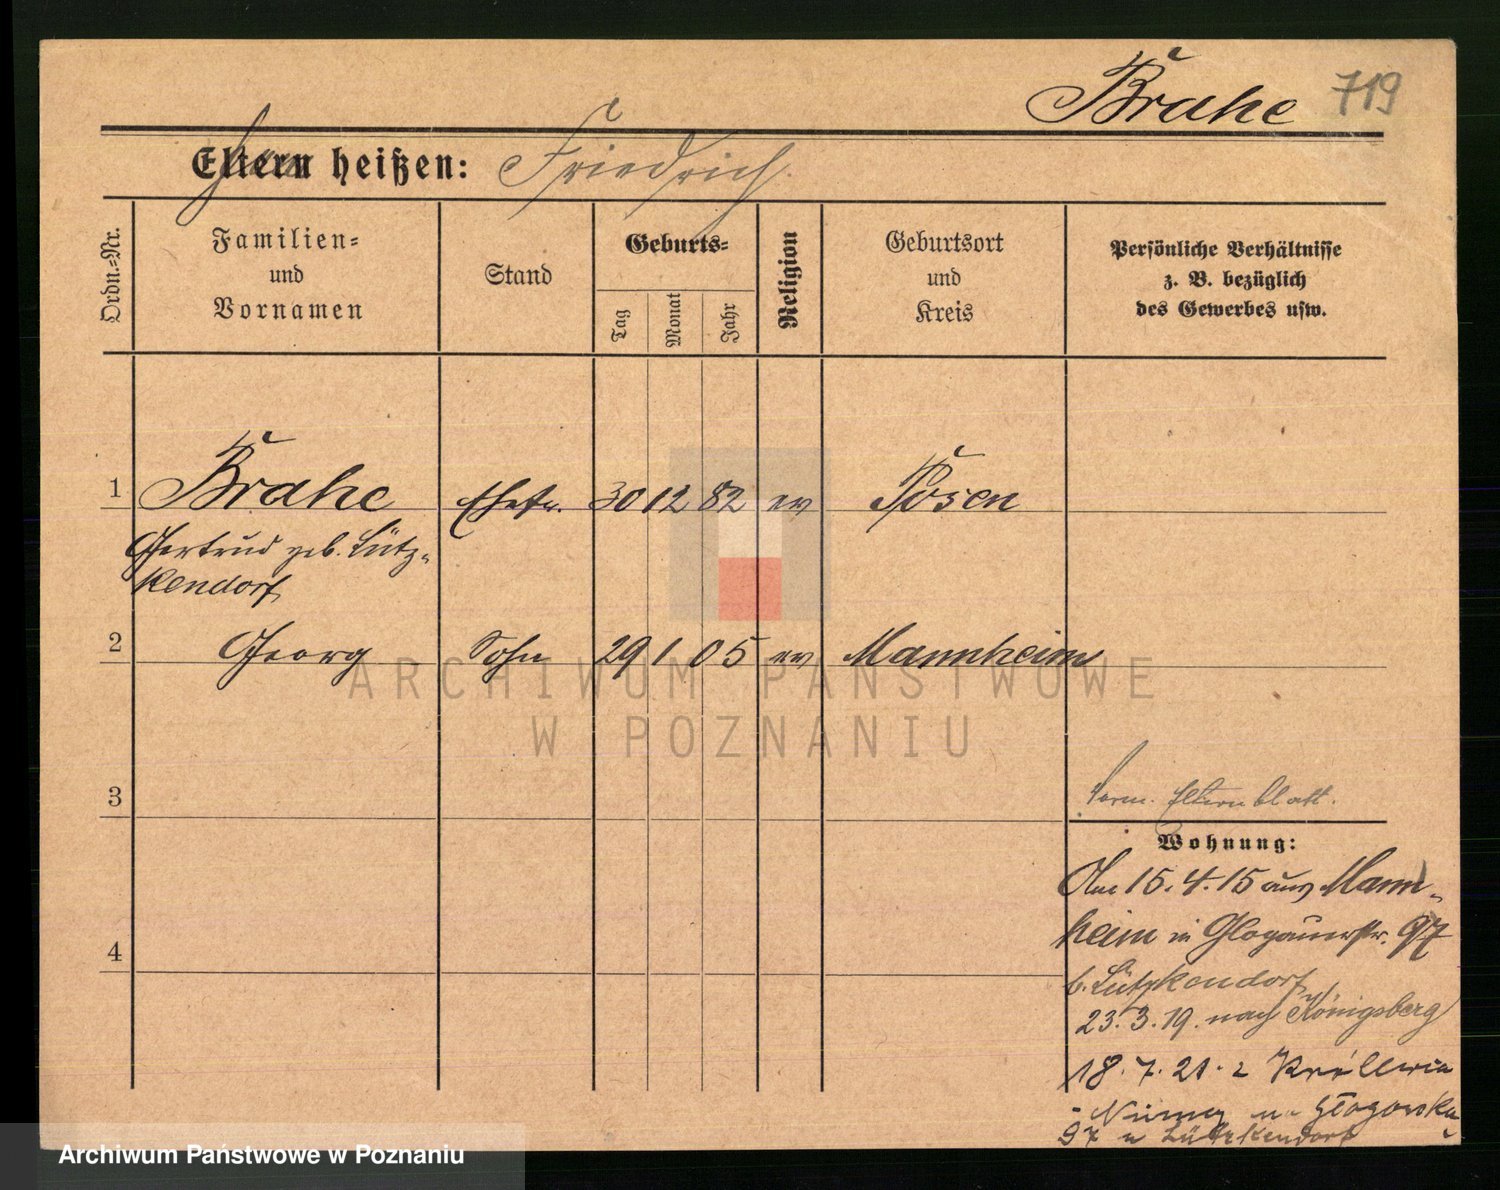 Brahe 719
Eltern heißen: Friedrich
Ordn.-Nr.
Familien-
und
Vornamen
Stand
Geburts-
Tag
Monat
Jahr
Religion
Geburtsort
und
Kreis
Persönliche Verhältnisse
z. B. bezüglich
des Gewerbes usw.
1 Brahe Ehefr. 30 12 82 ev Posen
Gertrud geb. Lütz-
kendorf
2 Georg Sohn 29 1 05 ev Mannheim
3
Elternblatt.
Wohnung:
Am 15.4.15 aus Mann-
heim in Glogauerstr. 97
b. Lützkendorf
23.3.19. nach Königsberg
4
18.7.21. z
Głogowska
97 u Lützkendorf
ARCHIWUM PAŃSTWOWE
W POZNANIU
Archiwum Państwowe w Poznaniu